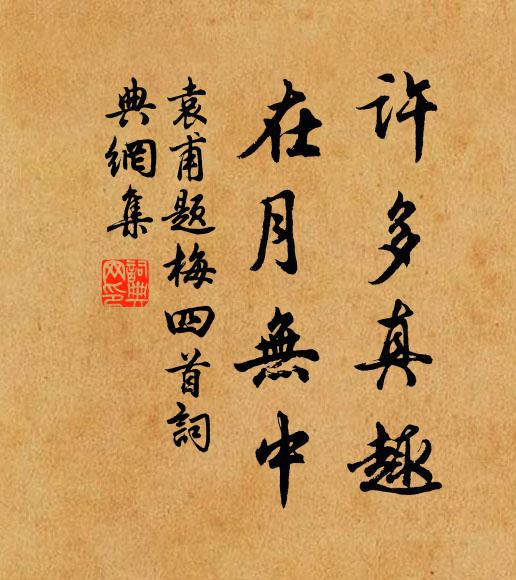 許多真趣
在月無中
袁甫題梅四首詞
典網集
詞典
网印